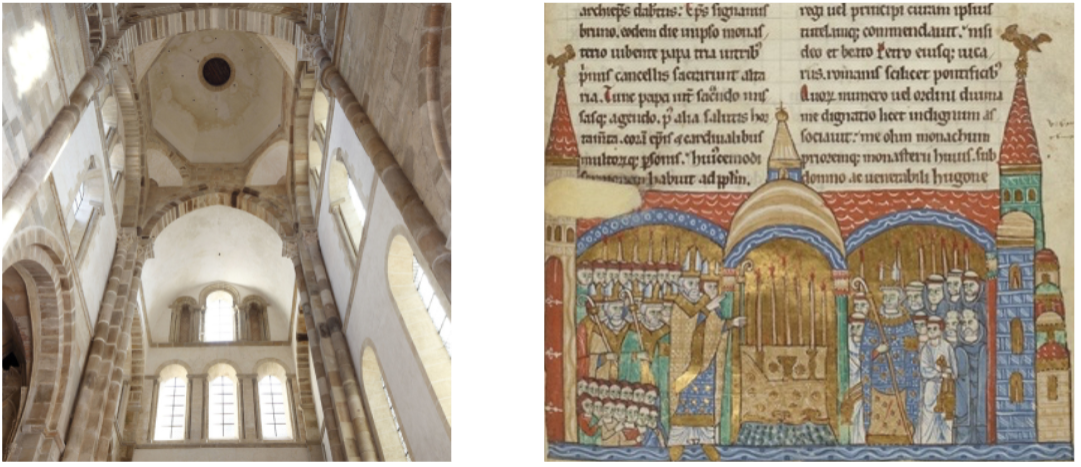 archiep̄s dabtus. ⁊ ep̄s signanus
bruno. eodem die in ipso monas
terio iubente papa tria in trib;
primis cancellis sacrarunt alta
ria. Tunc papa int̄ sac̄ndo mis
sasq; agendo. p̄ alia salutis hor
tam̄ta. corā ep̄is ⁊ cardinalibus
multorq; p̄sonis. huiuscemodi
sermonem habuit ad pp̄lm.
regi uel principi curam ipsius
tutelamq; commendauit. nisi
deo et beato Petro eiusq; uica
riis. romanis scilicet pontificib;
Quoꝝ numero uel ordini diuina
me dignatio licet indignum as
sociauit. me olim monachum
prioremq; monasterii huius sub
domno ac uenerabili hugone